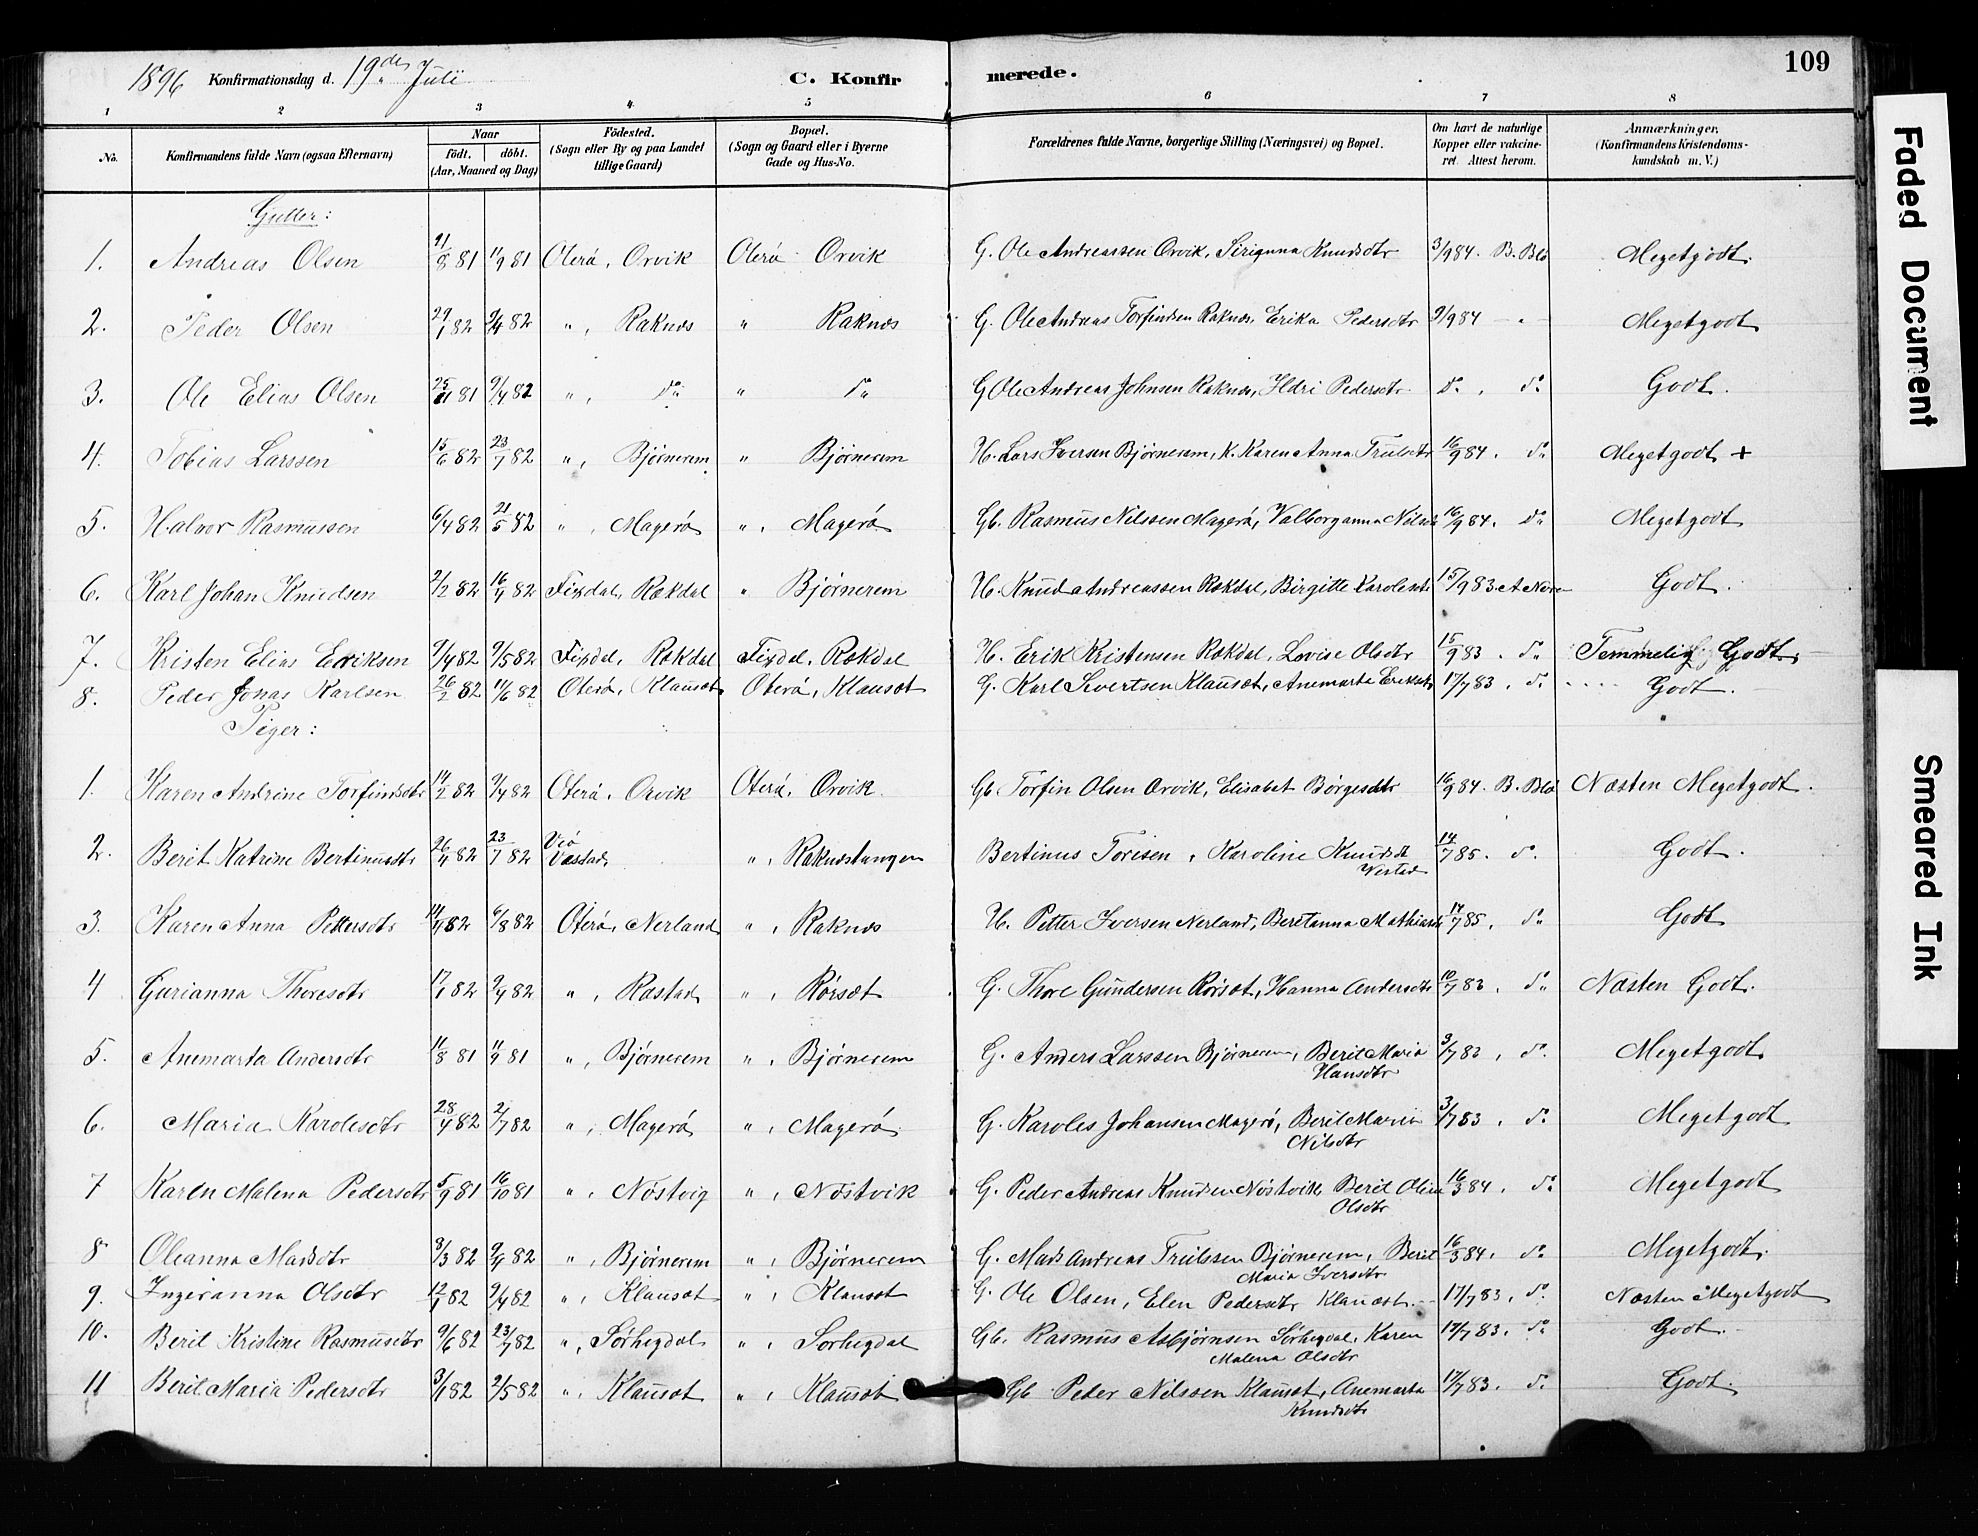 1896 Konfirmationsdag d. 19de Juli C. Konfirmerede. 109
1 2 3 4 5 6 7 8
No. Konfirmandens fulde Navn (ogsaa Efternavn) Naar født. døbt. (Aar, Maaned og Dag) Fødested. (Sogn eller By og paa Landet tillige Gaard) Bopæl. (Sogn og Gaard eller i Byerne Gade og Hus-No. Forældrenes fulde Navne, borgerlige Stilling (Næringsvei) og Bopæl. Om havt de naturlige Kopper eller vakcineret. Attest herom. Anmærkninger. (Konfirmandens Kristendomskundskab m. V.)
Gutter:
1. Andreas Olsen 21/8 81 11/9 81 Oterö, Orvik Oterö Orvik G. Ole Andreassen Orvik, Sirianna Knudsdtr 3/9 84. B. Blö Megetgodt.
2. Peder Olsen 29/1 82 9/4 82 " , Raknæs " Raknæs G. Ole Andreas Torfindsen Raknæs, Erika Pedersdtr 9/9 84 - " - Megetgodt
3. Ole Elias Olsen 25/11 81 9/4 82 " , do " do G Ole Andreas Johnsen Raknæs, Ildri Pedersdtr do , do Godt.
4. Tobias Larssen 15/6 82 23/7 82 " , Bjørnerem " Bjørnerem H. Lars Iversen Bjørnerem, K. Karen Anna Trulsdtr 16/9 84. do Megetgodt +
5. Halvor Rasmussen 6/4 82 21/5 82 " , Magerö " , Magerö Gb. Rasmus Nilssen Magerö, Valborganna Nilsdtr 16/9 84. do Megetgodt
6. Karl Johan Knudsen 2/2 82 16/4 82 Fixdal, Rækdal " Bjørnerem H. Knud Andreassen Rækdal, Birgitte Karolesdtr 15/9 83. A Nere Godt.
7. Kristen Elias Eriksen 9/4 82 9/5 82 Fixdal, Rækdal Fixdal, Rækdal H. Erik Kristensen Rækdal, Lovise Olsdtr 15/9 83. do Temmelig Godt.
8. Peder Jonas Karlsen 26/2 82 11/6 82 Oterö, Klausæt Oterö, Klausæt G. Karl Sivertsen Klausæt, Anemarta Eriksdtr 17/7 83. do Godt.
Piger:
1. Karen Andrine Torfindsdtr 14/2 82 9/4 82 Oterö, Orvik Oterö, Orvik. Gb Torfin Olsen Orvik, Elisabet Børgesdtr 16/9 84. B. Blö Næsten Megetgodt.
2. Berit Katrine Bertinusdtr 26/4 82 23/7 82 Veö Vestad " , Raknæstangen Bertinus Toresen, Karoline Knudsdt Vestad 14/7 85. do. Godt.
3. Karen Anna Pettersdtr 82 6/8 82 Oterö, Nerland " , Raknæs H. Petter Iversen Nerland, Beritanna Mathiasdtr 14/7 85. do Godt
4 Gurianna Thoresdtr 17/1 82 9/4 82 " , Rastad " , Rörsæt G. Thore Gundersen Rörsæt, Hanna Andersdtr 10/7 83. do Næsten Godt.
5. Anemarta Andersdtr 11/8 81 11/9 81 " , Bjørnerem " , Bjørnerem G. Anders Larssen Bjørnerem, Berit Maria Hansdtr 3/7 83, do. Megetgodt
6. Maria Karolesdtr 28/4 82 2/7 82 " , Magerö " , Magerö G. Karoles Johansen Magerö, Berit Maria Nilsdtr 3/7 83, do Megetgodt
7 Karen Malena Pedersdtr 5/9 81 16/10 81 " , Nöstvig " , Nöstvik G. Peder Andreas Knudsen Nöstvik Berit Olina Olsdtr 16/3 84, do Megetgodt
8 Oleanna Madsdtr 3/3 82 9/4 82 " , Bjørnerem " , Bjørnerem G. Mads Andreas Trulssen Bjørnerem, Berit Maria Iversdtr 16/3 84. do Megetgodt.
9. Ingeranna Olsdtr 12/1 82 9/4 82 " , Klausæt " , Klausæt G. Ole Olsen, Elen Pedersdtr Klausæt. 17/7 83, do. Næsten Megetgodt
10. Berit Kristine Rasmusdtr 9/6 82 23/7 82 " , Sørhegdal " , Sorhegdal Gb. Rasmus Asbjørnsen Sørhegdal, Karen Malena Olsdtr 17/7 83. do Godt.
11 Berit Maria Pedersdtr 3/1 82 2/5 82 " , Klausæt " , Klausæt Gb Peder Nilssen Klausæt, Anemarta Knudsdtr 17/7 83. do Godt.
Faded Document
Smeared Ink